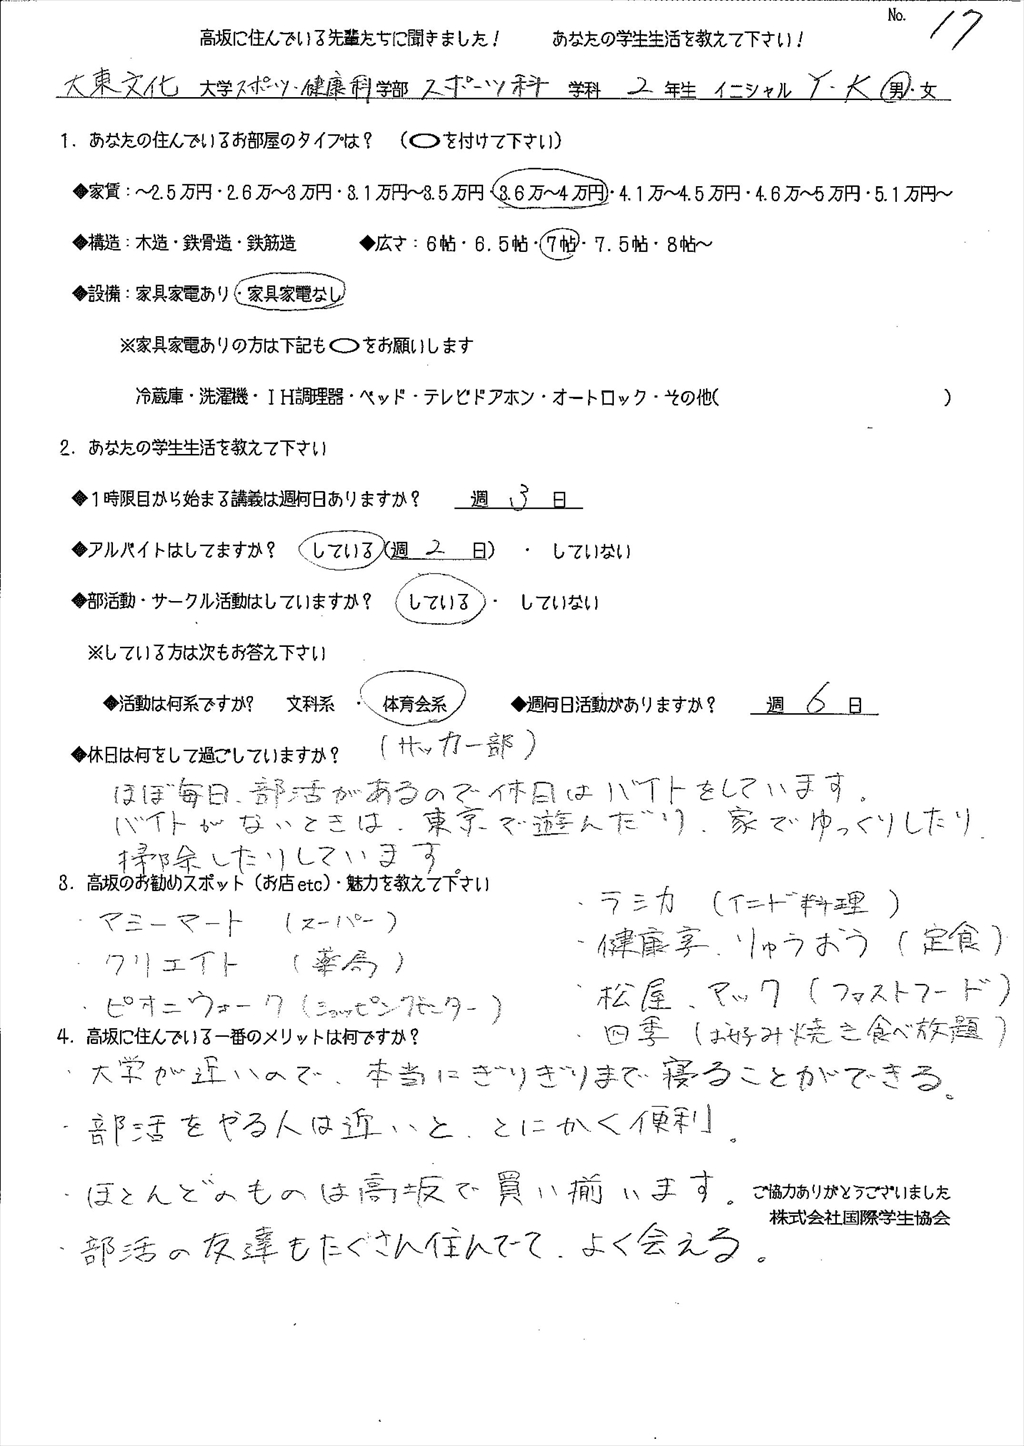 No. 17
高坂に住んでいる先輩たちに聞きました！　あなたの学生生活を教えて下さい！
大東文化 大学 スポーツ・健康科 学部 スポーツ科 学科 2 年生 イニシャル Y・K 男・女
1．あなたの住んでいるお部屋のタイプは？　（〇を付けて下さい）
◆家賃：～2.5万円・2.6万～3万円・3.1万円～3.5万円・3.6万～4万円・4.1万～4.5万円・4.6万～5万円・5.1万円～
◆構造：木造・鉄骨造・鉄筋造　◆広さ：6帖・6.5帖・7帖・7.5帖・8帖～
◆設備：家具家電あり・家具家電なし
※家具家電ありの方は下記も〇をお願いします
冷蔵庫・洗濯機・IH調理器・ベッド・テレビドアホン・オートロック・その他(　)
2．あなたの学生生活を教えて下さい
◆1時限目から始まる講義は週何日ありますか？　週 3 日
◆アルバイトはしてますか？　している（週 2 日）・していない
◆部活動・サークル活動はしていますか？　している・していない
※している方は次もお答え下さい
◆活動は何系ですか？　文科系・体育会系　◆週何日活動がありますか？　週 6 日
◆休日は何をして過ごしていますか？　(サッカー部)
ほぼ毎日、部活があるので休日はバイトをしています。
バイトがないときは、東京で遊んだり、家でゆっくりしたり、
掃除したりしています。
3．高坂のお勧めスポット（お店etc）・魅力を教えて下さい
・マミーマート　(スーパー)
・クリエイト　(薬局)
・ピオニウォーク(ショッピングセンター)
・ラミカ　(インド料理)
・健康亭、りゅうおう (定食)
・松屋、マック (ファストフード)
・四季 (お好み焼き食べ放題)
4．高坂に住んでいる一番のメリットは何ですか？
・大学が近いので、本当にぎりぎりまで寝ることができる。
・部活をやる人は近いと、とにかく便利。
・ほとんどのものは高坂で買い揃います。
・部活の友達もたくさん住んでて、よく会える。
ご協力ありがとうございました
株式会社国際学生協会